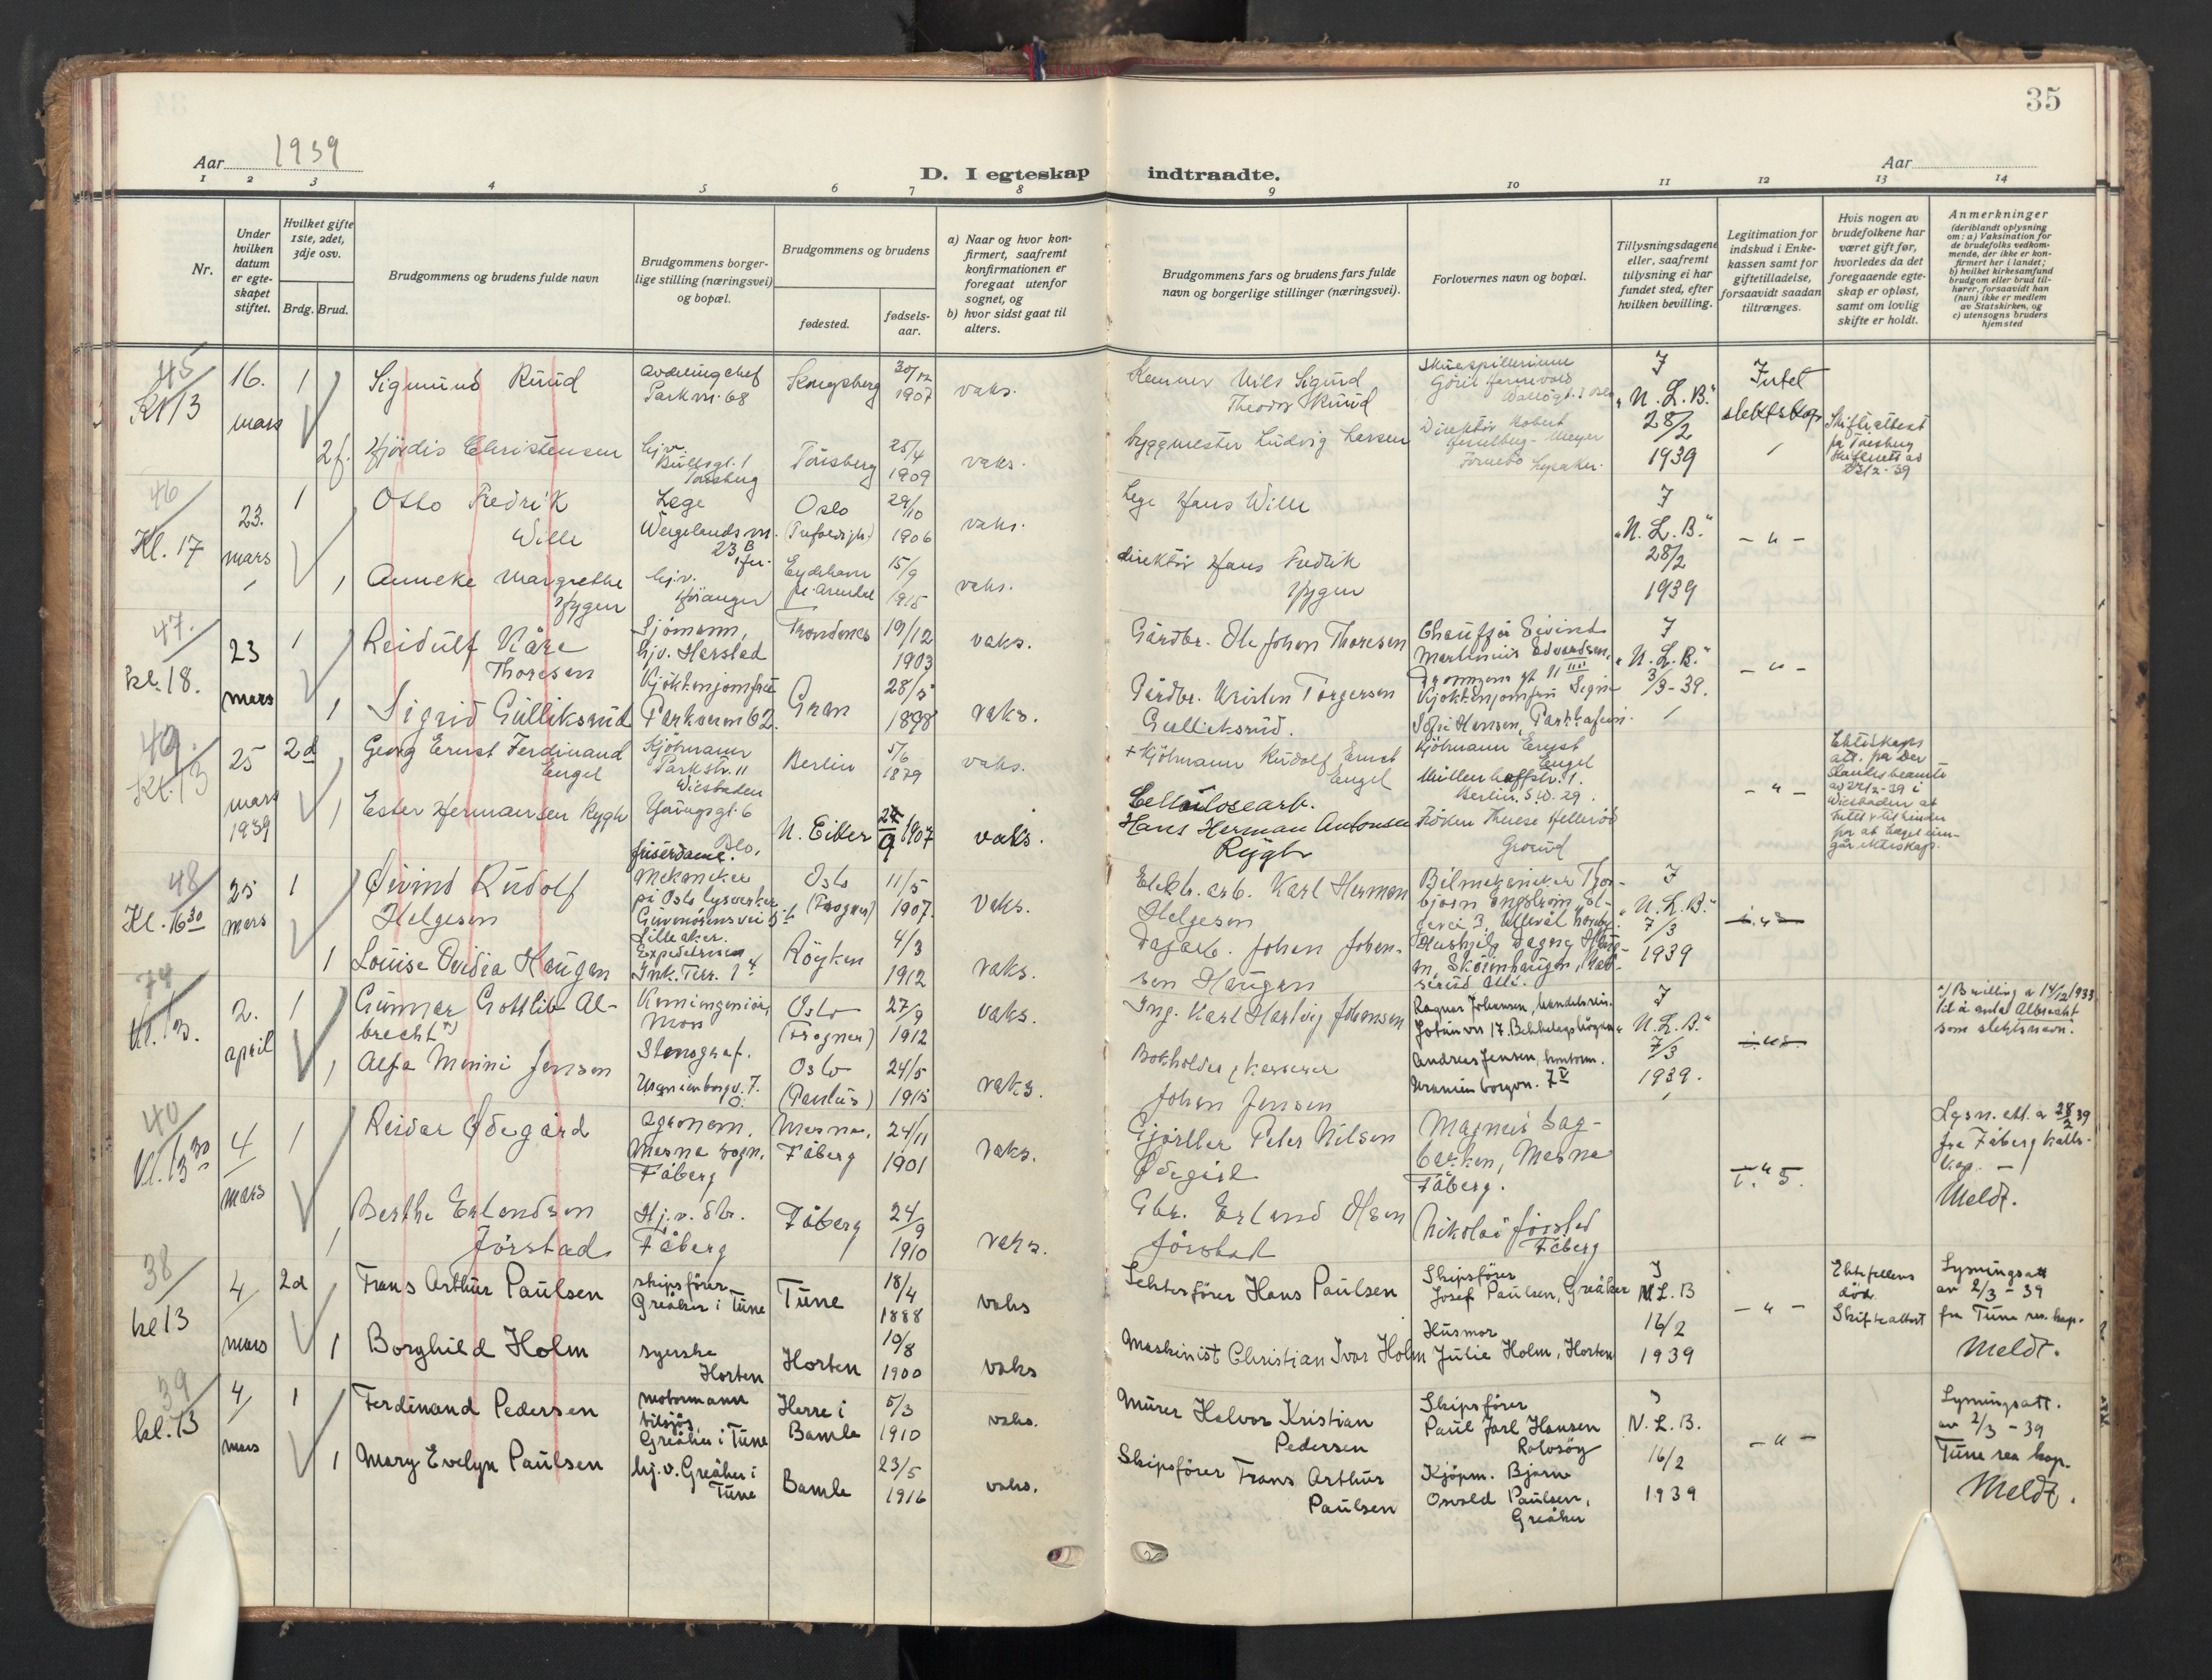 35
Aar 1939
D. I egteskap indtraadte.
Aar
1 2 3 4 5 6 7 8 9 10 11 12 13 14
Nr.
Under hvilken datum er egteskapet stiftet.
Hvilket gifte 1ste, 2det, 3dje osv.
Brdg. Brud.
Brudgommens og brudens fulde navn
Brudgommens borgerlige stilling (næringsvei) og bopæl.
Brudgommens og brudens
fødested.
fødselsaar.
a) Naar og hvor konfirmert, saafremt konfirmationen er foregaat utenfor sognet, og
b) hvor sidst gaat til alters.
Brudgommens fars og brudens fars fulde navn og borgerlige stillinger (næringsvei).
Forlovernes navn og bopæl.
Tillysningsdagene eller, saafremt tillysning ei har fundet sted, efter hvilken bevilling.
Legitimation for indskud i Enkekassen samt for giftetilladelse, forsaavidt saadan tiltrænges.
Hvis nogen av brudefolkene har været gift før, hvorledes da det foregaaende egteskap er opløst, samt om lovlig skifte er holdt.
Anmerkninger (deriblandt oplysning om: a) Vaksination for de brudefolks vedkommende, der ikke er konfirmert her i landet; b) hvilket kirkesamfund brudgom eller brud tilhører, forsaavidt han (hun) ikke er medlem av Statskirken, og c) utensogns bruders hjemsted
45 Kl 13
16. mars
1
Sigmund Ruud
Parkvn. 68
Kongsberg
30/12 1907
vaks.
Kemner Nils Sigurd Theodor Ruud
Skuespillerinne
I "N. L. B." 28/2 1939
Intet slektskap
2f.
Hjørdis Christensen
hjv. Bullsgt. 1 Tønsberg
Tønsberg
25/4 1909
vaks.
byggmester Ludvig Larsen
Direktør Robert Meyer
Fornebo Lysaker.
Skifteattest fra Tønsberg skifterett av
46 Kl. 17
23. mars
1
Otto Fredrik Wille
Lege Wergelandsvn. 23 B
Oslo
29/10 1906
vaks.
Lege Hans Wille
I "N. L. B." 28/2 1939
- " -
1
Anneke Margrethe Hygen
hj.v. Høianger
Eydehavn pr. Arendal
15/9 1915
vaks.
direktør Hans Fredrik Hygen
47. kl. 18.
23 mars
1
Reidulf Kåre Thoresen
Sjømann, hjv. Harstad
Trondenes
19/12 1903
vaks.
Gårdbr. Ole Johan Thoresen
Chauffør Eivind Martinius Edvardsen,
I "N. L. B." 3/3-39.
- " -
1
Sigrid Gulliksrud
Kjøkkenjomfru Parkveien 62.
Gran
28/5 1898
vaks.
Gårdbr. Kristen Torgersen Gulliksrud.
Kjøkkenjomfru Signe Sofie Hansen,
49. Kl. 13
25 mars 1939
2d
Georg Ernst Ferdinand Engel
Kjøpmann Parkstr. 11 Wiesbaden
Berlin
5/6 1879
vaks.
+ Kjøpmann Rudolf Ernst Engel
Kjøpmann Ernst Engel
Berlin. S.W. 29.
- " -
1
Ester Hermansen Rygh
Youngsgt. 6 Oslo, friserdame.
N. Eiker
1907
vaks.
Cellulosearb. Hans Herman Antonsen Rygh
Frøken Therese Hellerød Grorud
48 Kl. 16 30
25 mars
1
Øivind Rudolf Helgesen
Mekaniker på Oslo lysverker
Lilleaker.
Oslo (Frogner)
11/5 1907.
vaks.
Elektr. arb. Karl Herman Helgesen
Bilmekaniker Thorbjørn Engstrøm,
I "N. L. B." 7/3 1939
1
Louise Ovidia Haugen
Expeditrise Ink. Terr. 1
Røyken
4/3 1912
vaks.
Dagarb. Johan Johansen Haugen
Hushjelp Dagny Haugen,
74 Kl. 13.
2. april
1
Gunnar Gottlieb Albrecht x)
Kemiingeniør, Moss
Oslo (Frogner)
27/9 1912
vaks.
Ing. Karl Hartvig Johansen
Ragnar Johansen,
I "N. L. B." 7/3 1939.
x) Bevilling av 14/12 1933 til å anta Albrecht som slektsnavn.
1
Alfa Minni Jensen
Stenograf. Uranienborgv. 7. O.
Oslo (Paulus)
24/5 1915
vaks.
Bokholder, kasserer Johan Jensen
Andreas Jensen, kontorm. Uranienborgvn. 7 V
40 Kl. 13 30
4/ mars
1
Reidar Ødegård
agronom. Mesna sogn. Fåberg
Mesna, Fåberg
24/11 1901
vaks.
Gjørtler Peter Nilsen Ødegård
Magnus Bagbakken, Mesna Fåberg.
Lysn. att. a 28/2 39 fra Fåberg Meldt.
1
Berthe Erlandsen Jørstad
Hj.v. Fåberg
Fåberg
24/9 1910
vaks.
Gbr. Erland Olsen Jørstad
Nikolai Jørstad Fåberg
38/ kl 13
4/ mars
2d
Frans Arthur Paulsen
skipsfører Greåker i Tune
Tune
18/4 1888
vaks
Lekterfører Hans Paulsen
Skipsfører Josef Paulsen, Greåker
I N. L. B 16/2 1939
- " -
Ektefellens død. Skifteattest
Lysningsatt av 2/3 - 39 fra Tune res. kap. Meldt.
1
Borghild Holm
syerske Horten
Horten
19/8 1900
vaks
Maskinist Christian Ivar Holm
Husmor Julie Holm, Horten
39 kl. 13
4/ mars
1
Ferdinand Pedersen
motormann tilsjøs Greåker i Tune
Herre i Bamle
5/3 1910
vaks.
Murer Halvor Kristian Pedersen
Skipsfører Paul Jarl Hansen Rolvsøy
I N. L. B. 16/2 1939
- " -
Lysningsatt. av 2/3 - 39 Tune res kap. Meldt.
1
Mary Evelyn Paulsen
hj. v. Greåker i Tune
Bamle
23/5 1916
vaks.
Skipsfører Frans Arthur Paulsen
Kjøpm. Bjarne Osvald Paulsen, Greåker